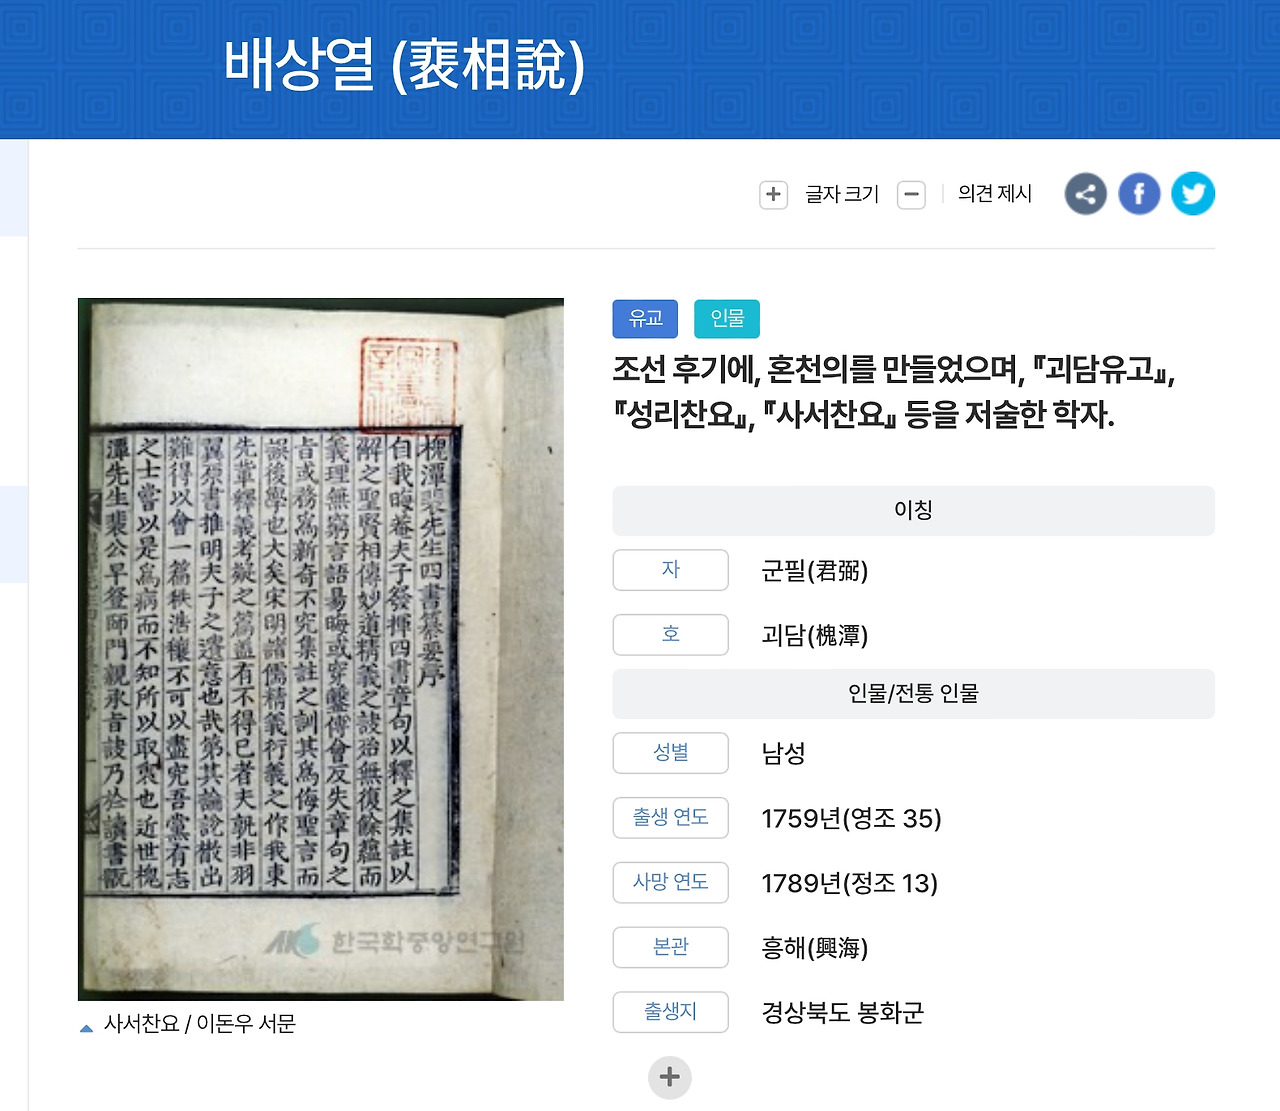 배상열 (裵相說)
글자 크기
의견 제시
유교 인물
조선 후기에, 혼천의를 만들었으며, 『괴담유고』,
『성리찬요』, 『사서찬요』 등을 저술한 학자.
이칭
자 군필(君弼)
호 괴담(槐潭)
인물/전통 인물
성별 남성
출생 연도 1759년(영조 35)
사망 연도 1789년(정조 13)
본관 흥해(興海)
출생지 경상북도 봉화군
槐潭裵先生四書纂要序
自我晦菴夫子發揮四書章句以釋之集註以
解之聖賢相傳妙道精義之誜殆無復餘蘊而
義理無窮言語易晦或穿鑿傅會反失章句之
旨或務爲新奇不究集註之訓其爲侮聖言而
誤後學也大矣宋明諸儒精義衍義之作我東
先輩釋義考疑之篇盖有不得已者夫孰非羽
翼原書推明夫子之遺意也哉第其論說散出
難得以會一篇秩浩穰不可以盡究吾黨有志
之士嘗以是爲病而不知所以取裏也近世槐
潭先生裵公早登師門親承旨訣乃於讀書
한국학중앙연구원
사서찬요 / 이돈우 서문